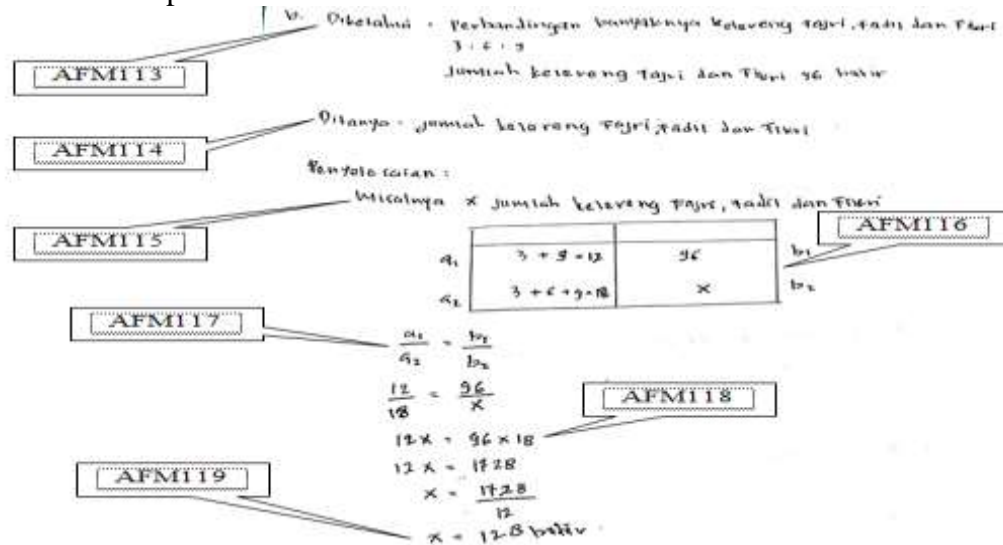 b. Diketahui : Perbandingan banyaknya kelereng Fajri, Fadil dan Fikri
3 : 6 : 9
AFM113
Jumlah kelereng Fajri dan Fikri 96 butir
Ditanya : jumlah kelereng Fajri, Fadil dan Fikri
AFM114
Penyelesaian :
Misalnya x jumlah kelereng Fajri, Fadil dan Fikri
AFM115
AFM116
a₁ 3 + 9 = 12 96 b₁
a₂ 3 + 6 + 9 = 18 x b₂
AFM117
a₁/a₂ = b₁/b₂
12/18 = 96/x
AFM118
12x = 96 x 18
12x = 1728
AFM119
x = 1728/12
x = 128 butir